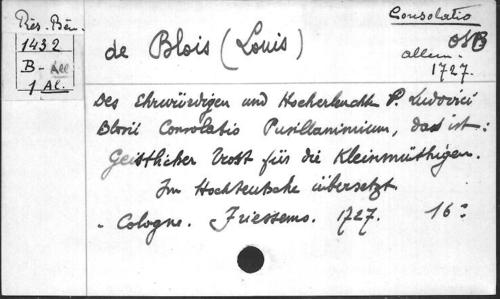 Rés. Bén.
1432
B - All
1 Al.
Consolatio
OSB
allem.
1727.
de Blois (Louis)
Des Ehrwürdigen und Hocherleucht P. Ludovici
Blosii Consolatio Pusillanimium, das ist:
Geistlicher Trost für die Kleinmüthigen.
Im Hochteutsche übersetzt
- Cologne. Friessems. 1727. 16°